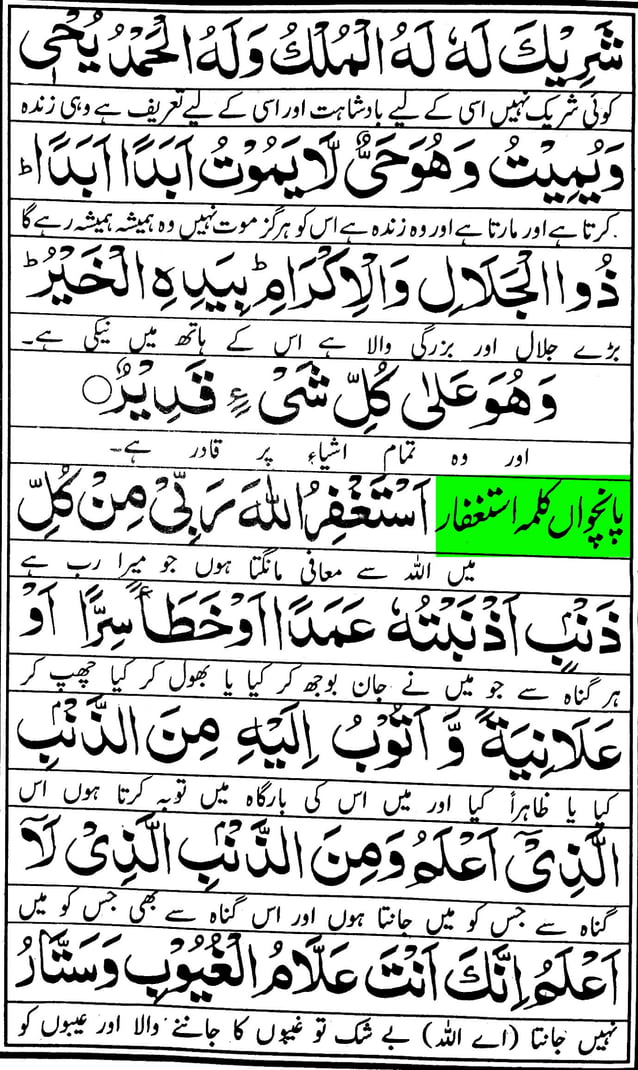 شَرِيْكَ لَهٗ لَهُ الْمُلْكُ وَلَهُ الْحَمْدُ يُحْيٖ
کوئی شریک نہیں اسی کے لیے بادشاہت اور اسی کے لیے تعریف ہے وہی زندہ
وَيُمِيْتُ وَهُوَ حَيٌّ لَّا يَمُوْتُ اَبَدًا اَبَدًا ؕ
کرتا ہے اور مارتا ہے اور وہ زندہ ہے اس کو ہرگز موت نہیں وہ ہمیشہ ہمیشہ رہے گا
ذُوا الْجَلَالِ وَالْاِكْرَامِ ؕ بِيَدِهِ الْخَيْرُ ؕ
بڑے جلال اور بزرگی والا ہے اس کے ہاتھ میں نیکی ہے۔
وَهُوَ عَلٰى كُلِّ شَىْءٍ قَدِيْرٌ ○
اور وہ تمام اشیاء پر قادر ہے۔
پانچواں کلمہ استغفار اَسْتَغْفِرُ اللّٰهَ رَبِّيْ مِنْ كُلِّ
میں اللہ سے معافی مانگتا ہوں جو میرا رب ہے
ذَنْۢبٍ اَذْنَبْتُهٗ عَمَدًا اَوْ خَطَأً سِرًّا اَوْ
ہر گناہ سے جو میں نے جان بوجھ کر کیا یا بھول کر کیا چھپ کر
عَلَانِيَةً وَّ اَتُوْبُ اِلَيْهِ مِنَ الذَّنْۢبِ
کیا یا ظاہراً کیا اور میں اس کی بارگاہ میں توبہ کرتا ہوں اس
الَّذِيْٓ اَعْلَمُ وَمِنَ الذَّنْۢبِ الَّذِيْ لَآ
گناہ سے جس کو میں جانتا ہوں اور اس گناہ سے بھی جس کو میں
اَعْلَمُ اِنَّكَ اَنْتَ عَلَّامُ الْغُيُوْبِ وَسَتَّارُ
نہیں جانتا (اے اللہ) بے شک تو غیبوں کا جاننے والا اور عیبوں کو